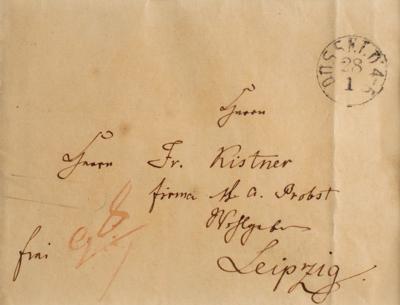 DÜSSELD
28
1
4-5
Herrn
Herrn Fr. Kistner
firma H. A. Probst
Wohlgeb
Leipzig.
frei
8